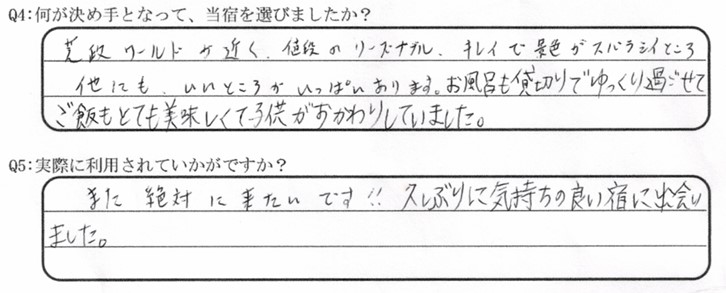 Q4:何が決め手となって、当宿を選びましたか？
芝段ワールドが近く、値段のリーズナブル、キレイで景色がスバラシイところ
他にも、いいところがいっぱいあります。お風呂も貸切りでゆっくり過ごせて
ご飯もとても美味しくて子供がおかわりしていました。
Q5:実際に利用されていかがですか？
また絶対に来たいです!!久しぶりに気持ちの良い宿に出会い
ました。